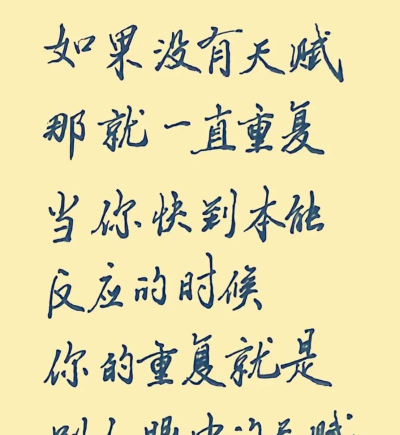 如果没有天赋
那就一直重复
当你快到本能
反应的时候
你的重复就是